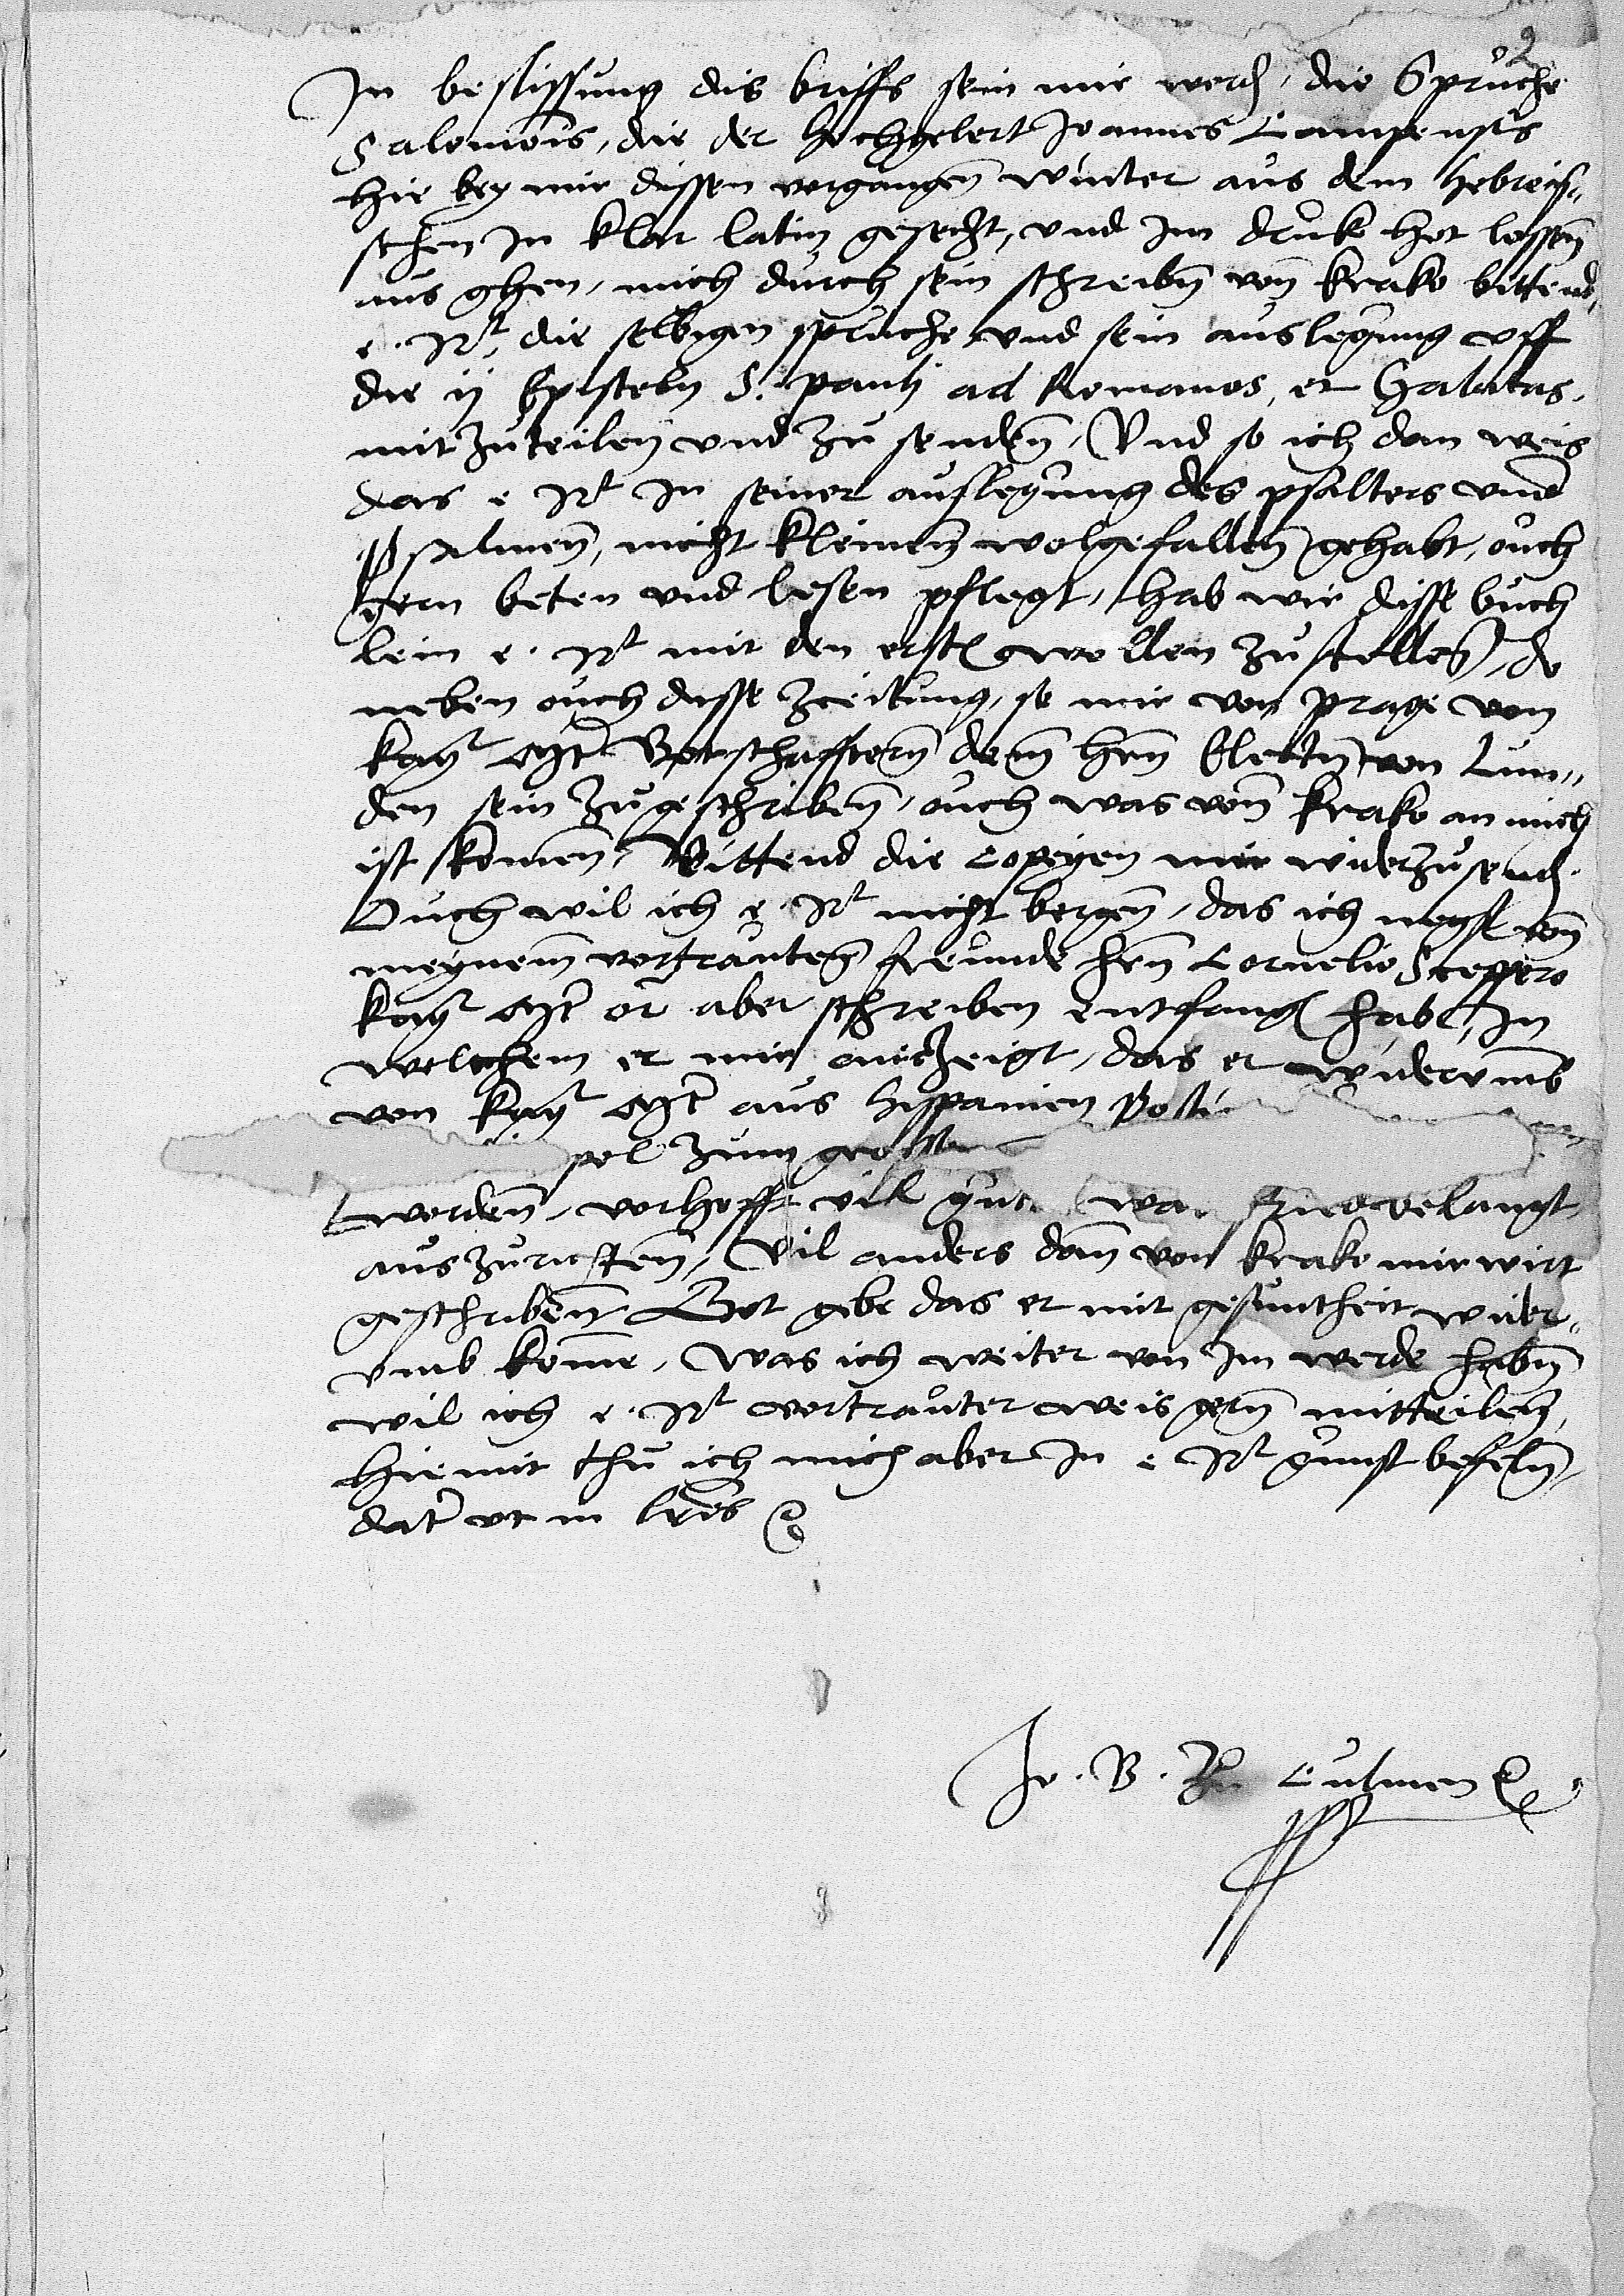 In beslissung dis briffs sein mir word, die Sprüche
Salomonis, die der hochgelert Joannes Campensis
hie bey mir dissen vorgangen winter aus dem hebreis,,
schen in klar latin gesetzt, und im druke het lossen
aus ghen, mich durch sein schreiben von Krako bittend,
e. Nt, die selbigen sprüche und sein auslegung uff
die ij Episteln S. pauli ad Romanos, et Galatas,
mitzuteilen und zu senden, Und so ich dan weis
das e Nt in seiner auslegung des psalters und
psalmen, nicht kleinen wolgefallen gehabt, ouch
gern beten und lesen pflegt, hab wir disse buch
lein e. Nt mit den ersten wollen zustellen, do
neben ouch disse zceitung, so mir von Prage von
kayr Mt Botschafftern dem hern Electen von Lun,,
den sein zugeschriben, ouch was von Krako an mich
ist komen, Bittend die copeyen mir widerzusend.
Ouch wil ich e. Nt nicht bergen, das ich negst von
meynem vortrauten freunde hern Cornelio Sceppero
kayr Mt or aber schreiben entfangen habe, in
welchem er mir anczeigt, das er widerumb
von kayr Mt aus hyspanien
pel zum
worden, vorhofft vill gut was frid belangt
auszurichten, Vil anders dan von Krako mir wirt
geschriben Got gebe das er mit gesuntheit wider,,
umb kome, Was ich weiter von im werde haben
wil ich e. Nt vortrauter weis gern mitteilen,
hiemit thu ich mich aber in e Nt gunst befeln,
dat ut in lris
Jo. B. Zu Culmen